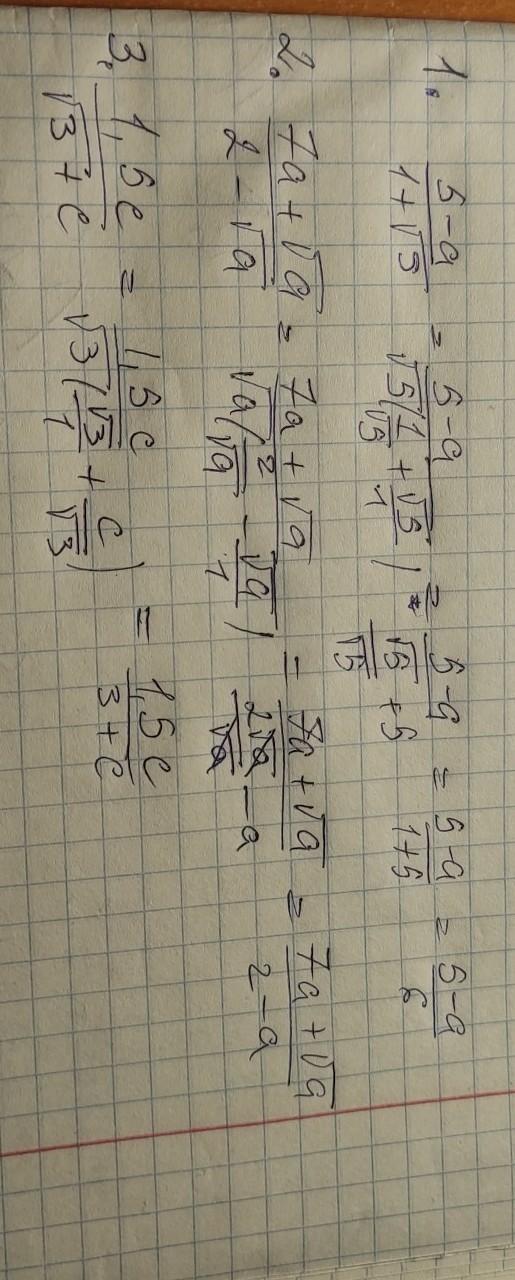 1. (5-a)/(1+√5) = (5-a)/(√5(1/√5 + √5/1)) = (5-a)/(√5/√5 + 5) = (5-a)/(1+5) = (5-a)/6
2. (7a+√a)/(2-√a) = (7a+√a)/(√a(2/√a - √a/1)) = (7a+√a)/(2√a/√a - a) = (7a+√a)/(2-a)
3. 1,5c/(√3+c) = 1,5c/(√3(√3/1 + c/√3)) = 1,5c/(3+c)